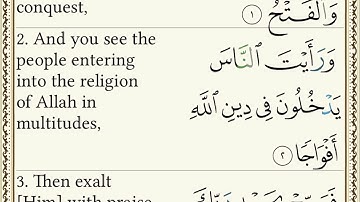 conquest,
وَٱلْفَتْحُ ١
2. And you see the
people entering
into the religion
of Allah in
multitudes,
وَرَأَيْتَ ٱلنَّاسَ
يَدْخُلُونَ فِى دِينِ ٱللَّهِ
أَفْوَاجًا ٢
3. Then exalt
[Him] with praise